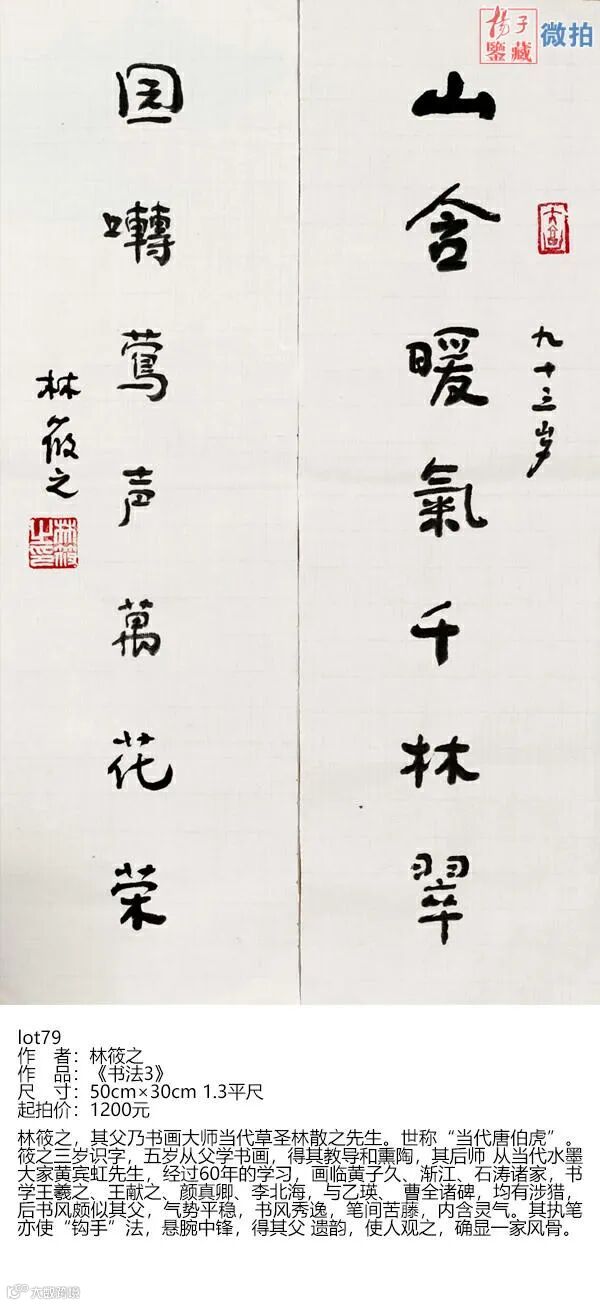 楊子
鑒藏
微拍
山含暖氣千林翠
九十三岁
园囀莺声萬花荣
林筱之
林筱之印
lot79
作 者：林筱之
作 品：《书法3》
尺 寸：50cm×30cm 1.3平尺
起拍价：1200元
林筱之，其父乃书画大师当代草圣林散之先生。世称“当代唐伯虎”。
筱之三岁识字，五岁从父学书画，得其教导和熏陶，其后师 从当代水墨
大家黄宾虹先生，经过60年的学习，画临黄子久、渐江、石涛诸家，书
学王羲之、王献之、颜真卿、李北海，与乙瑛、 曹全诸碑，均有涉猎，
后书风颇似其父，气势平稳，书风秀逸，笔间苦藤，内含灵气。其执笔
亦使“钩手”法，悬腕中锋，得其父 遗韵，使人观之，确显一家风骨。
大威跨境